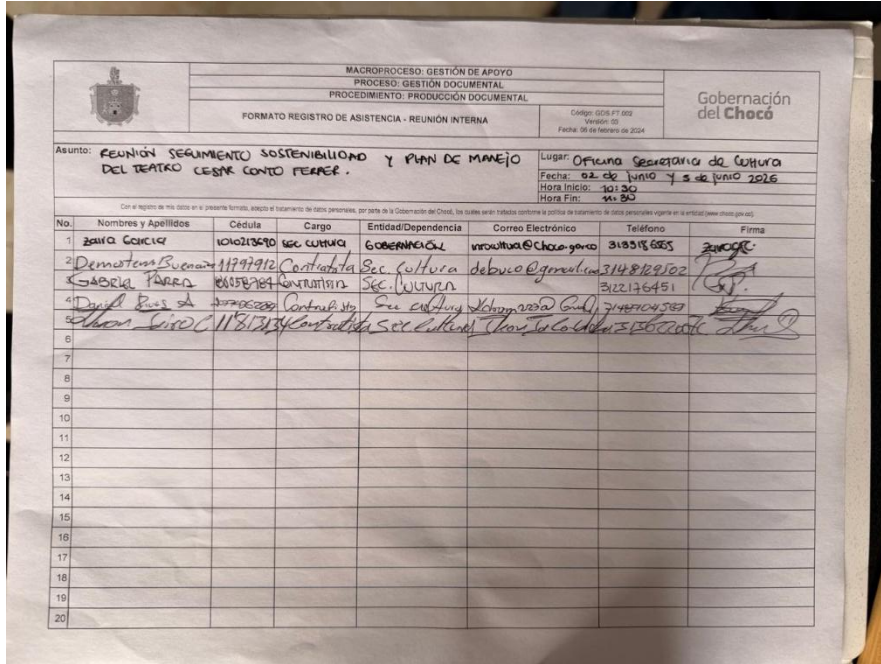 MACROPROCESO: GESTIÓN DE APOYO
PROCESO: GESTIÓN DOCUMENTAL
PROCEDIMIENTO: PRODUCCIÓN DOCUMENTAL
FORMATO REGISTRO DE ASISTENCIA - REUNIÓN INTERNA
Código: GDS-FT-002
Versión: 03
Fecha: 06 de febrero de 2024
Gobernación
del Chocó
Asunto: REUNIÓN SEGUIMIENTO SOSTENIBILIDAD Y PLAN DE MANEJO
DEL TEATRO CESAR CONTO FERRER.
Lugar: Oficina Secretaria de Cultura
Fecha: 02 de junio y 5 de junio 2025
Hora Inicio: 10:30
Hora Fin: 11:30
Con el registro de mis datos en el presente formato, acepto el tratamiento de datos personales, por parte de la Gobernación del Chocó, los cuales serán tratados conforme la política de tratamiento de datos personales vigente en la entidad (www.choco.gov.co).
No. Nombres y Apellidos Cédula Cargo Entidad/Dependencia Correo Electrónico Teléfono Firma
1 Zaira Garcia 1010213690 SEC CULTURA GOBERNACIÓN
2 11797912 Contratista Sec. Cultura 3148129502
3 GABRIEL PARRA CONTRATISTA SEC. CULTURA 3122176451
4 Daniel Contratista Sec cultura
5 Contratista Sec Cultura
6
7
8
9
10
11
12
13
14
15
16
17
18
19
20